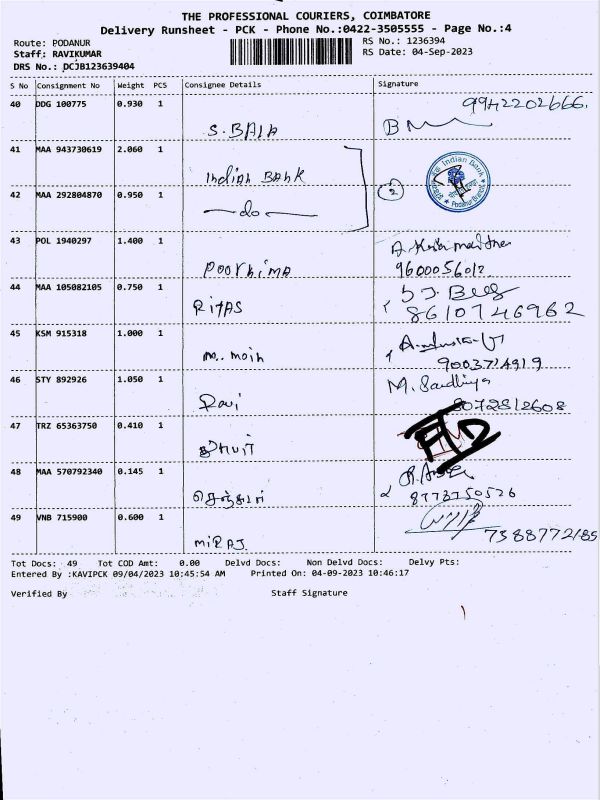 THE PROFESSIONAL COURIERS, COIMBATORE
Delivery Runsheet - PCK - Phone No.:0422-3505555 - Page No.:4
Route: PODANUR RS No.: 1236394
Staff: RAVIKUMAR RS Date: 04-Sep-2023
DRS No.: DCJB123639404
S No Consignment No Weight PCS Consignee Details Signature
40 DDG 100775 0.930 1 9942202666.
S. BALA
41 MAA 943730619 2.060 1
Indian BANK Indian Bank
42 MAA 292804870 0.950 1 2
do Podanur Branch
43 POL 1940297 1.400 1
POORNIMA 9600056012
44 MAA 105082105 0.750 1
RITAS 8610746962
45 KSM 915318 1.000 1
M. moin 9003714919
46 STY 892926 1.050 1 M. Sandhiya
Ravi 8072812608
47 TRZ 65363750 0.410 1
48 MAA 570792340 0.145 1
8773750526
49 VNB 715900 0.600 1
MIRAJ 7388772185
Tot Docs: 49 Tot COD Amt: 0.00 Delvd Docs: Non Delvd Docs: Delvy Pts:
Entered By :KAVIPCK 09/04/2023 10:45:54 AM Printed On: 04-09-2023 10:46:17
Verified By Staff Signature